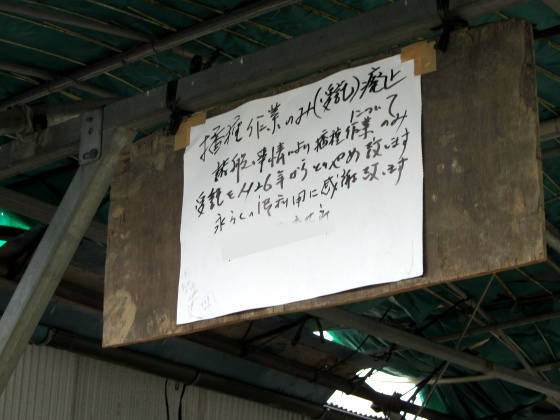 播種作業のみ(受託)廃止
について
諸般の事情により播種作業のみ
受託をH26年からとりやめ致します
永らくの御利用に感謝致します